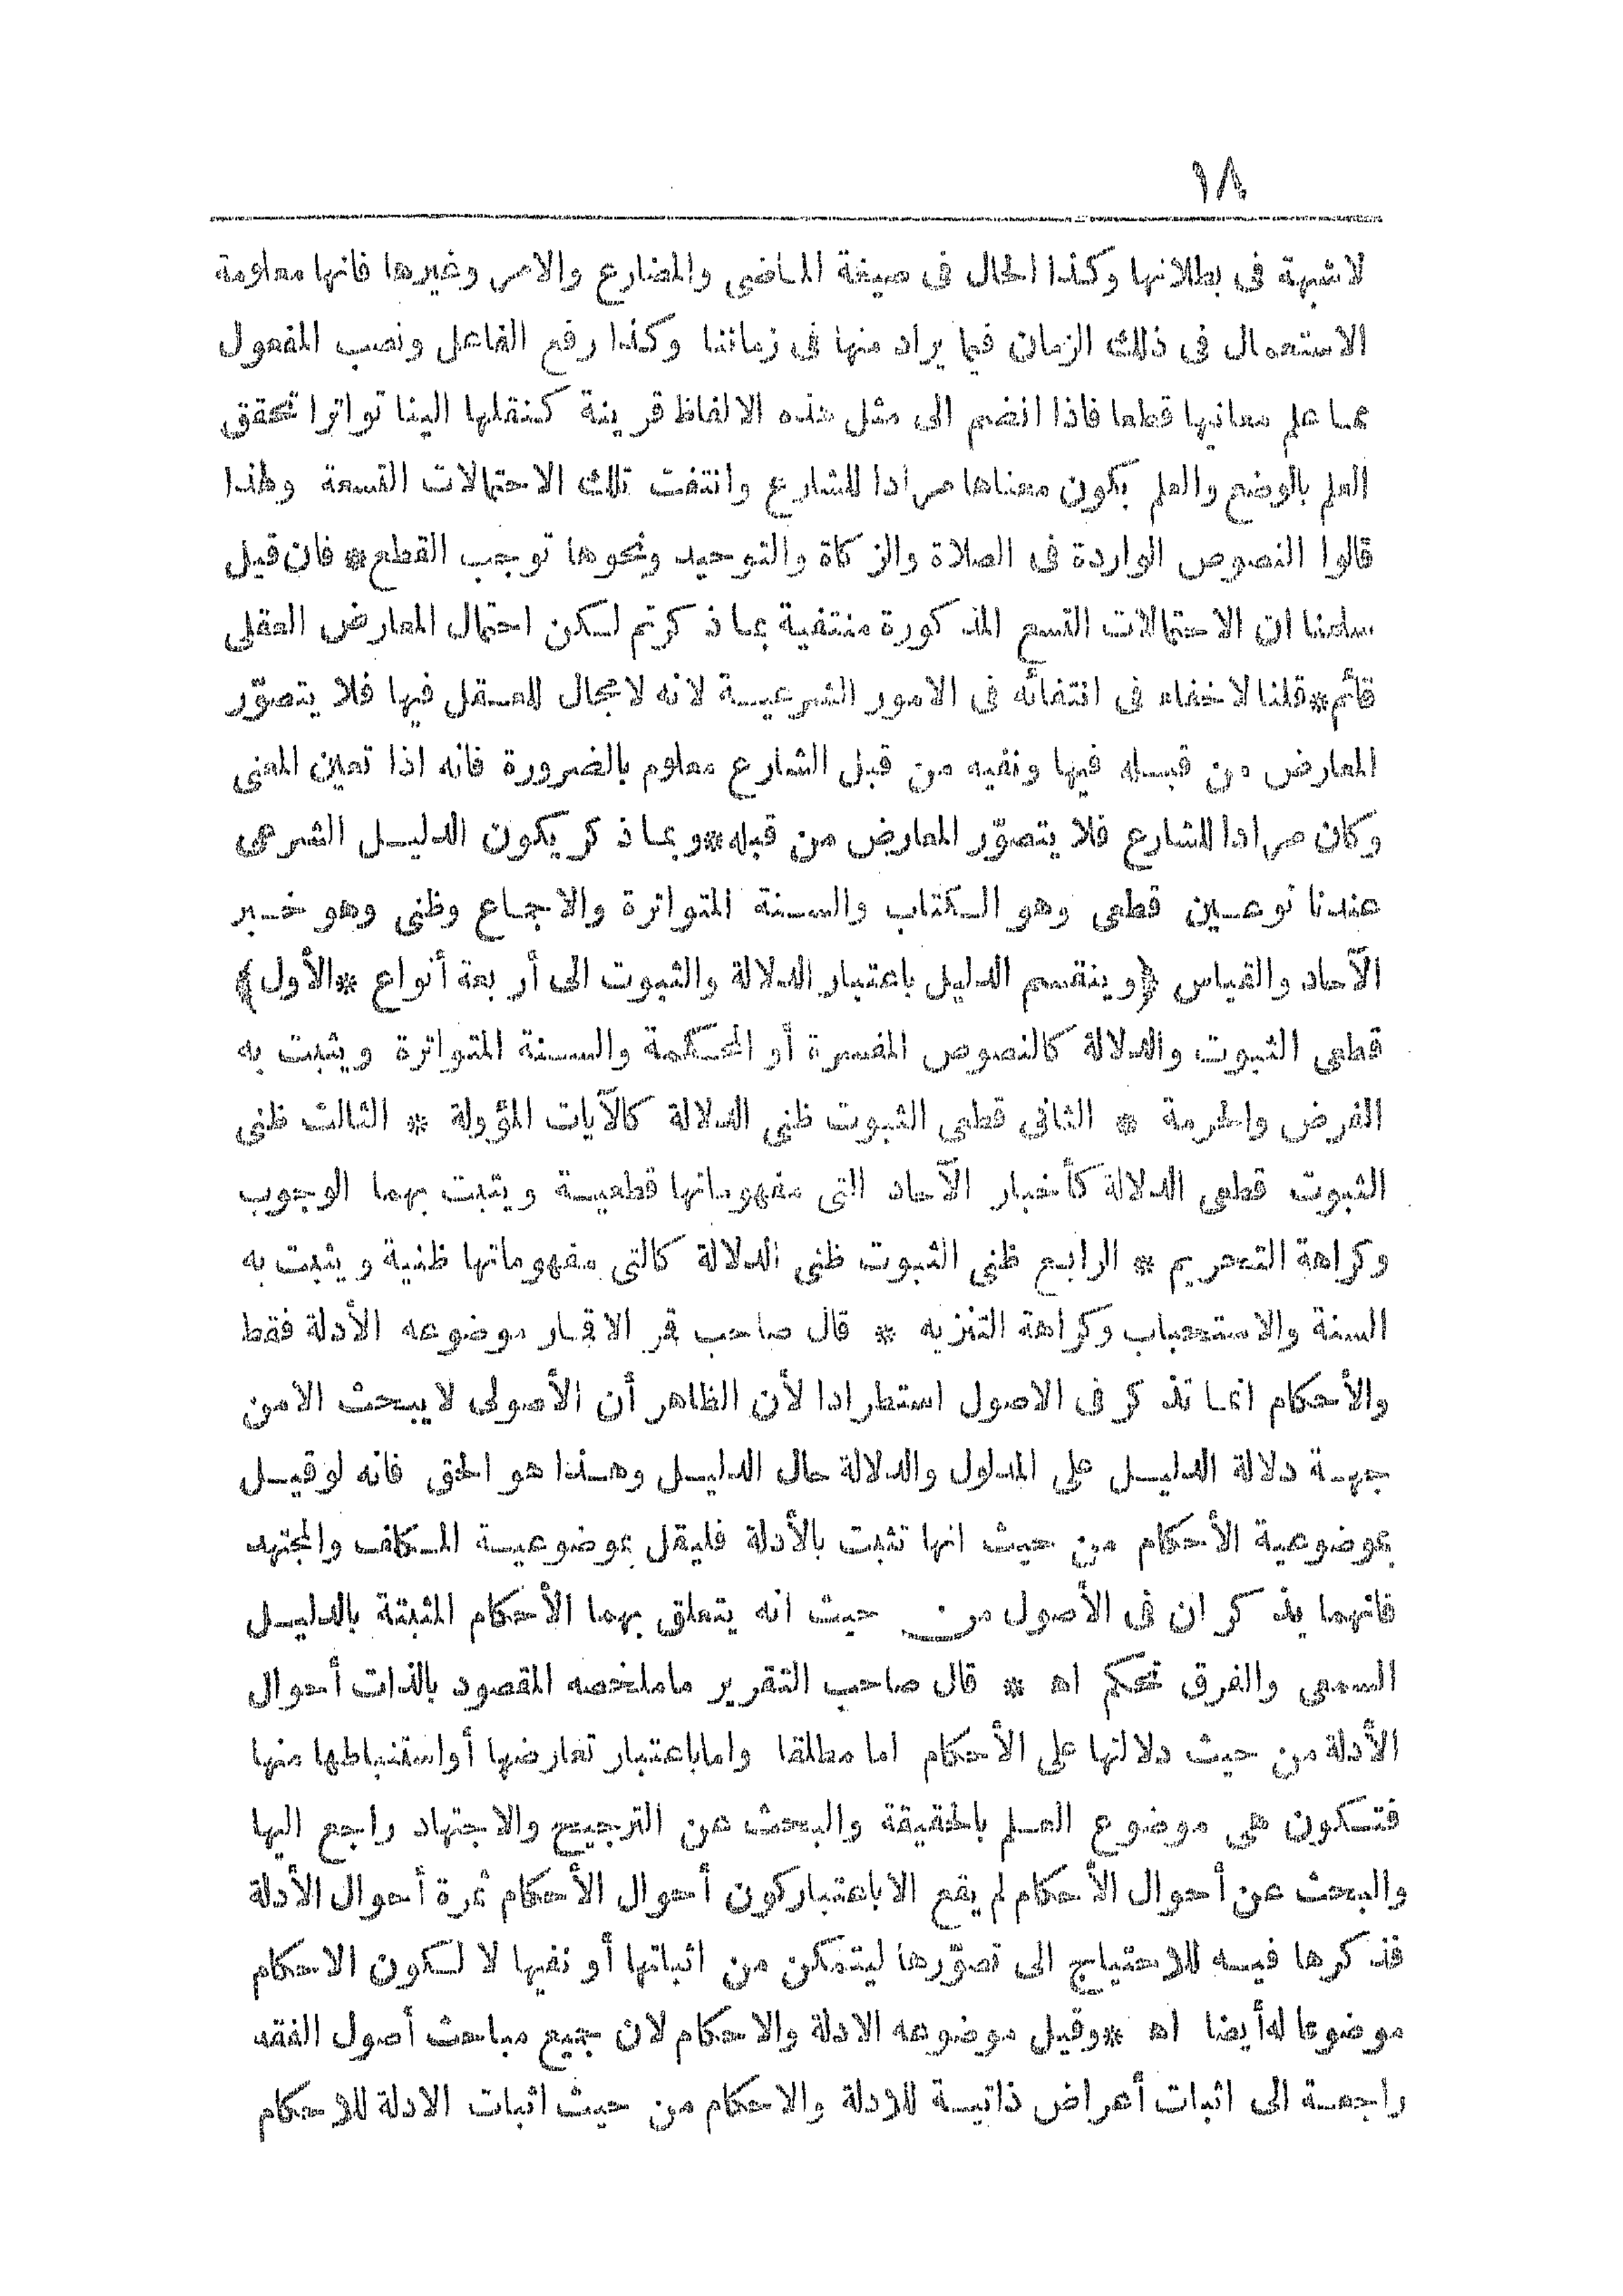 ١٨
لاشبهة فى بطلانها وكذا الحال فى صيغة الماضى والمضارع والامر وغيرها فانها معلومة
الاستعمال فى ذلك الزمان فيما يراد منها فى زماننا وكذا رفع الفاعل ونصب المفعول
مما علم معانيها قطعا فاذا انضم الى مثل هذه الالفاظ قرينة كنقلها الينا تواترا تحقق
العلم بالوضع والعلم بكون معناها مرادا للشارع وانتفت تلك الاحتمالات التسعة ولهذا
قالوا النصوص الواردة فى الصلاة والزكاة والتوحيد ونحوها توجب القطع * فان قيل
سلمنا ان الاحتمالات التسع المذكورة منتفية بما ذكرتم لكن احتمال المعارض العقلى
قائم * قلنا لاخفاء فى انتفائه فى الامور الشرعية لانه لامجال للعقل فيها فلا يتصوّر
المعارض من قبله فيها ونفيه من قبل الشارع معلوم بالضرورة فانه اذا تعين المعنى
وكان مرادا للشارع فلا يتصوّر المعارض من قبله * وبما ذكر يكون الدليل الشرعى
عندنا نوعين قطعى وهو الكتاب والسنة المتواترة والاجماع وظنى وهو خبر
الآحاد والقياس ﴿وينقسم الدليل باعتبار الدلالة والثبوت الى أربعة أنواع * الأول﴾
قطعى الثبوت والدلالة كالنصوص المفسرة أو المحكمة والسنة المتواترة ويثبت به
الفرض والحرمة * الثانى قطعى الثبوت ظنى الدلالة كالآيات المؤولة * الثالث ظنى
الثبوت قطعى الدلالة كأخبار الآحاد التى مفهوماتها قطعية ويثبت بهما الوجوب
وكراهة التحريم * الرابع ظنى الثبوت ظنى الدلالة كالتى مفهوماتها ظنية ويثبت به
السنة والاستحباب وكراهة التنزيه * قال صاحب قمر الاقمار موضوعه الأدلة فقط
والأحكام انما تذكر فى الاصول استطرادا لأن الظاهر أن الأصولى لايبحث الامن
جهة دلالة الدليل على المدلول والدلالة حال الدليل وهذا هو الحق فانه لوقيل
بموضوعية الأحكام من حيث انها تثبت بالأدلة فليقل بموضوعية المكلف والمجتهد
فانهما يذكران فى الأصول من حيث انه يتعلق بهما الأحكام المثبتة بالدليل
السمعى والفرق تحكم اه * قال صاحب التقرير ماملخصه المقصود بالذات أحوال
الأدلة من حيث دلالتها على الأحكام اما مطلقا واماباعتبار تعارضها أواستنباطها منها
فتكون هى موضوع العلم بالحقيقة والبحث عن الترجيح والاجتهاد راجع اليها
والبحث عن أحوال الأحكام لم يقع الاباعتباركون أحوال الأحكام ثمرة أحوال الأدلة
فذكرها فيه للاحتياج الى تصوّرها ليتمكن من اثباتها أو نفيها لا لكون الاحكام
موضوعا له أيضا اه * وقيل موضوعه الادلة والاحكام لان جميع مباحث أصول الفقه
راجعة الى اثبات أعراض ذاتية للادلة والاحكام من حيث اثبات الادلة للاحكام